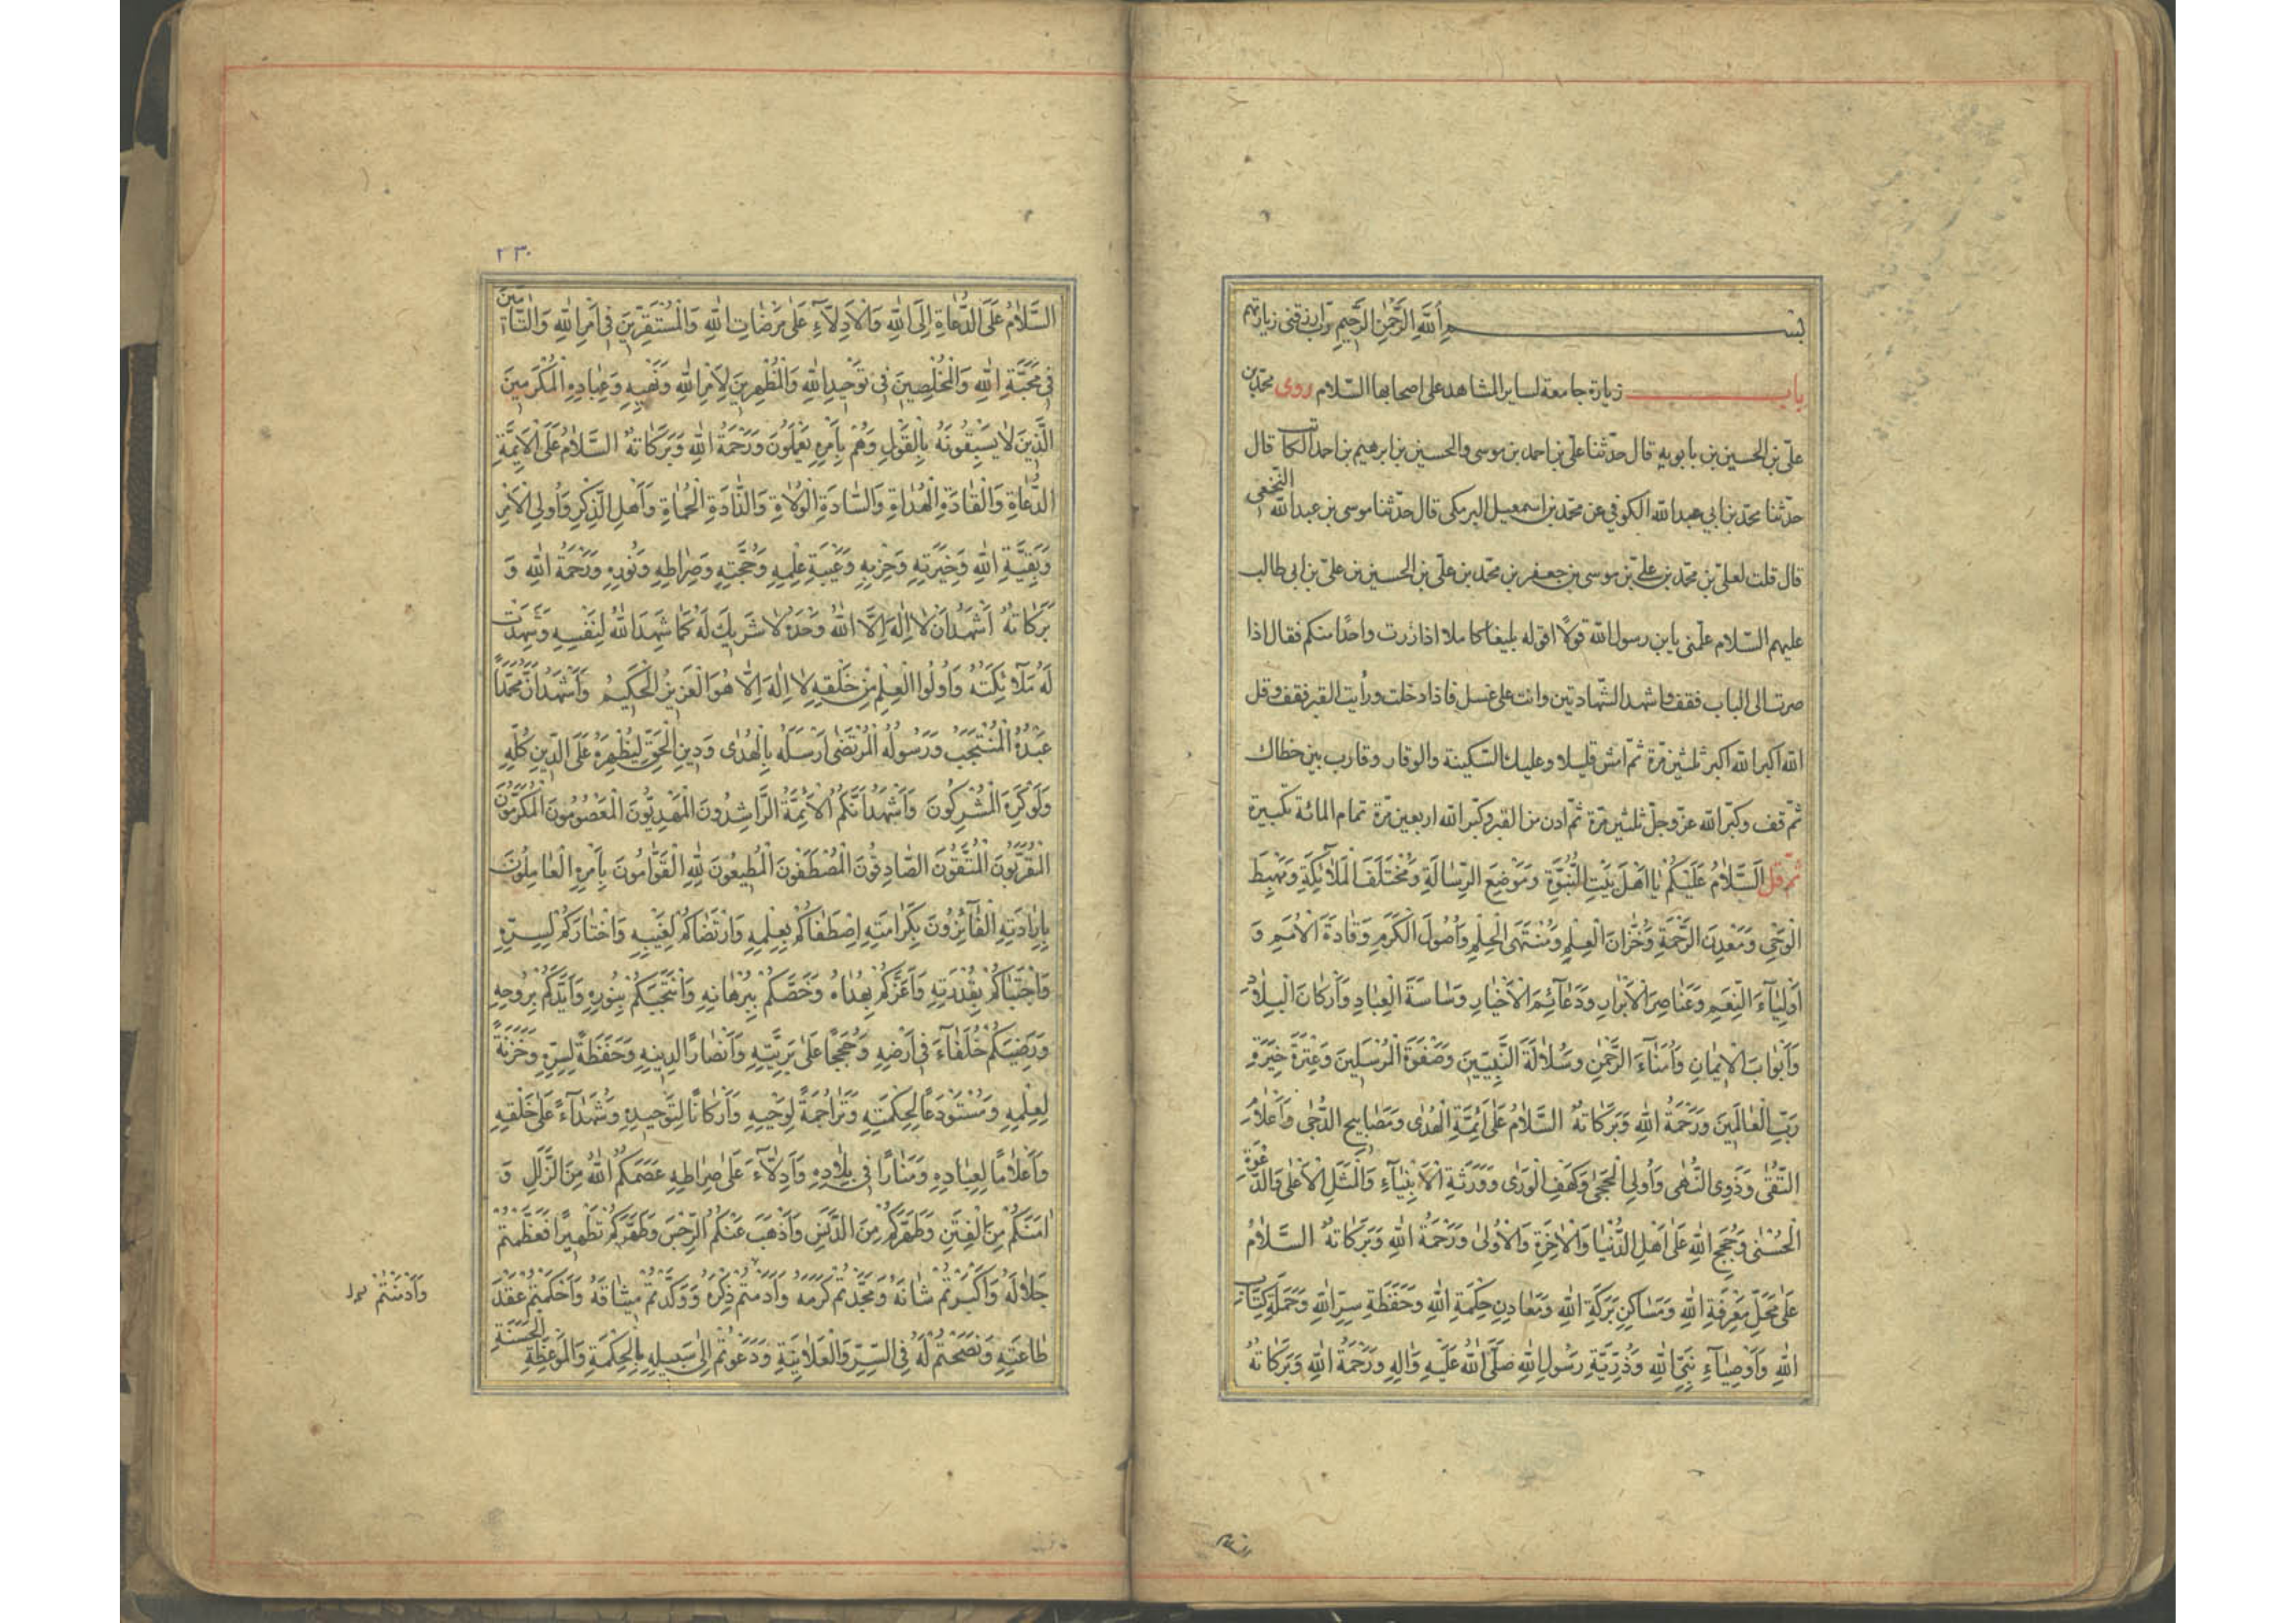 بسم اللّه الرّحمن الرّحيم ربّ ارزقنى زيارتهم
باب زيارة جامعة لساير المشاهد على اصحابها السّلام روى محمّد بن
علىّ بن الحسين بن بابويه قال حدّثنا علىّ بن احمد بن موسى والحسين بن ابرهيم بن احمد الكاتب قال
حدّثنا محمّد بن ابي عبد اللّه الكوفي عن محمّد بن اسمعيل البرمكى قال حدّثنا موسى بن عبد اللّه النّخعى
قال قلت لعلىّ بن محمّد بن علىّ بن موسى بن جعفر بن محمّد بن علىّ بن الحسين بن علىّ بن ابى طالب
عليهم السّلام علّمنى يا بن رسول اللّه قولًا اقوله بليغا كاملا اذا زرت واحدًا منكم فقال اذا
صرت الى الباب فقف واشهد الشّهادتين وانت على غسل فاذا دخلت ورأيت القبر فقف وقل
اللّه اكبر اللّه اكبر ثلثين مرّة ثمّ امش قليلا وعليك السّكينة والوقار وقارب بين خطاك
ثمّ قف وكبّر اللّه عزّ وجلّ ثلثين مرّة ثمّ ادن من القبر وكبّر اللّه اربعين مرّة تمام المائة تكبيرة
ثمّ قل اَلسَّلامُ عَلَيْكُمْ يا اَهْلَ بَيْتِ النُّبُوَّةِ وَمَوْضِعَ الرِّسالَةِ وَمُخْتَلَفَ الْمَلآئِكَةِ وَمَهْبِطَ
الْوَحْىِ وَمَعْدِنَ الرَّحْمَةِ وَخُزّانَ الْعِلْمِ وَمُنْتَهَى الْحِلْمِ وَاُصُولَ الْكَرَمِ وَقادَةَ الْاُمَمِ وَ
اَوْلِيآءَ النِّعَمِ وَعَناصِرَ الْاَبْرارِ وَدَعآئِمَ الْاَخْيارِ وَساسَةَ الْعِبادِ وَاَرْكانَ الْبِلادِ
وَاَبْوابَ الْايمانِ وَاُمَنآءَ الرَّحْمنِ وَسُلالَةَ النَّبِيّينَ وَصَفْوَةَ الْمُرْسَلينَ وَعِتْرَةَ خِيَرَةِ
رَبِّ الْعالَمينَ وَرَحْمَةُ اللّهِ وَبَرَكاتُهُ السَّلامُ عَلى اَئِمَّةِ الْهُدى وَمَصابيحِ الدُّجى وَاَعْلامِ
التُّقى وَذَوِى النُّهى وَاُولِى الْحِجى وَكَهْفِ الْوَرى وَوَرَثَةِ الْاَنْبِيآءِ وَالْمَثَلِ الْاَعْلى وَالدَّعْوَةِ
الْحُسْنى وَحُجَجِ اللّهِ عَلى اَهْلِ الدُّنْيا وَالْاخِرَةِ وَالْاُولى وَرَحْمَةُ اللّهِ وَبَرَكاتُهُ السَّلامُ
عَلى مَحَلِّ مَعْرِفَةِ اللّهِ وَمَساكِنِ بَرَكَةِ اللّهِ وَمَعادِنِ حِكْمَةِ اللّهِ وَحَفَظَةِ سِرِّ اللّهِ وَحَمَلَةِ كِتابِ
اللّهِ وَاَوْصِيآءِ نَبِىِّ اللّهِ وَذُرِّيَّةِ رَسُولِ اللّهِ صَلَّى اللّهُ عَلَيْهِ وَالِهِ وَرَحْمَةُ اللّهِ وَبَرَكاتُهُ
السلام
٢٣٠
السَّلامُ عَلَى الدُّعاةِ اِلَى اللّهِ وَالْاَدِلّآءِ عَلى مَرْضاتِ اللّهِ وَالْمُسْتَقِرّينَ فى اَمْرِ اللّهِ وَالتّآمّينَ
فى مَحَبَّةِ اللّهِ وَالْمُخْلِصينَ فى تَوْحيدِ اللّهِ وَالْمُظْهِرينَ لِاَمْرِ اللّهِ وَنَهْيِهِ وَعِبادِهِ الْمُكْرَمينَ
الَّذينَ لا يَسْبِقُونَهُ بِالْقَوْلِ وَهُمْ بِاَمْرِهِ يَعْمَلُونَ وَرَحْمَةُ اللّهِ وَبَرَكاتُهُ السَّلامُ عَلَى الْاَئِمَّةِ
الدُّعاةِ وَالْقادَةِ الْهُداةِ وَالسّادَةِ الْوُلاةِ وَالذّادَةِ الْحُماةِ وَاَهْلِ الذِّكْرِ وَاُولِى الْاَمْرِ
وَبَقِيَّةِ اللّهِ وَخِيَرَتِهِ وَحِزْبِهِ وَعَيْبَةِ عِلْمِهِ وَحُجَّتِهِ وَصِراطِهِ وَنُورِهِ وَرَحْمَةُ اللّهِ وَ
بَرَكاتُهُ اَشْهَدُ اَنْ لا اِلهَ اِلَّا اللّهُ وَحْدَهُ لا شَريكَ لَهُ كَما شَهِدَ اللّهُ لِنَفْسِهِ وَشَهِدَتْ
لَهُ مَلآئِكَتُهُ وَاُولُوا الْعِلْمِ مِنْ خَلْقِهِ لا اِلهَ اِلّا هُوَ الْعَزيزُ الْحَكيمُ وَاَشْهَدُ اَنَّ مُحَمَّدًا
عَبْدُهُ الْمُنْتَجَبُ وَرَسُولُهُ الْمُرْتَضى اَرْسَلَهُ بِالْهُدى وَدينِ الْحَقِّ لِيُظْهِرَهُ عَلَى الدّينِ كُلِّهِ
وَلَوْ كَرِهَ الْمُشْرِكُونَ وَاَشْهَدُ اَنَّكُمُ الْاَئِمَّةُ الرّاشِدُونَ الْمَهْدِيُّونَ الْمَعْصُومُونَ الْمُكَرَّمُونَ
الْمُقَرَّبُونَ الْمُتَّقُونَ الصّادِقُونَ الْمُصْطَفَوْنَ الْمُطيعُونَ لِلّهِ الْقَوّامُونَ بِاَمْرِهِ الْعامِلُونَ
بِاِرادَتِهِ الْفآئِزُونَ بِكَرامَتِهِ اِصْطَفاكُمْ بِعِلْمِهِ وَارْتَضاكُمْ لِغَيْبِهِ وَاخْتارَكُمْ لِسِرِّهِ
وَاجْتَباكُمْ بِقُدْرَتِهِ وَاَعَزَّكُمْ بِهُداهُ وَخَصَّكُمْ بِبُرْهانِهِ وَانْتَجَبَكُمْ بِنُورِهِ وَاَيَّدَكُمْ بِرُوحِهِ
وَرَضِيَكُمْ خُلَفآءَ فى اَرْضِهِ وَحُجَجًا عَلى بَرِيَّتِهِ وَاَنْصارًا لِدينِهِ وَحَفَظَةً لِسِرِّهِ وَخَزَنَةً
لِعِلْمِهِ وَمُسْتَوْدَعًا لِحِكْمَتِهِ وَتَراجِمَةً لِوَحْيِهِ وَاَرْكانًا لِتَوْحيدِهِ وَشُهَدآءَ عَلى خَلْقِهِ
وَاَعْلامًا لِعِبادِهِ وَمَنارًا فى بِلادِهِ وَاَدِلّآءَ عَلى صِراطِهِ عَصَمَكُمُ اللّهُ مِنَ الزَّلَلِ وَ
امَنَكُمْ مِنَ الْفِتَنِ وَطَهَّرَكُمْ مِنَ الدَّنَسِ وَاَذْهَبَ عَنْكُمُ الرِّجْسَ وَطَهَّرَكُمْ تَطْهيرًا فَعَظَّمْتُمْ
جَلالَهُ وَاَكْبَرْتُمْ شَانَهُ وَمَجَّدْتُمْ كَرَمَهُ وَاَدَمْتُمْ ذِكْرَهُ وَوَكَّدْتُمْ ميثاقَهُ وَاَحْكَمْتُمْ عَقْدَ
طاعَتِهِ وَنَصَحْتُمْ لَهُ فِى السِّرِّ وَالْعَلانِيَةِ وَدَعَوْتُمْ اِلى سَبيلِهِ بِالْحِكْمَةِ وَالْمَوْعِظَةِ الْحَسَنَةِ
وَاَدْمَنْتُمْ